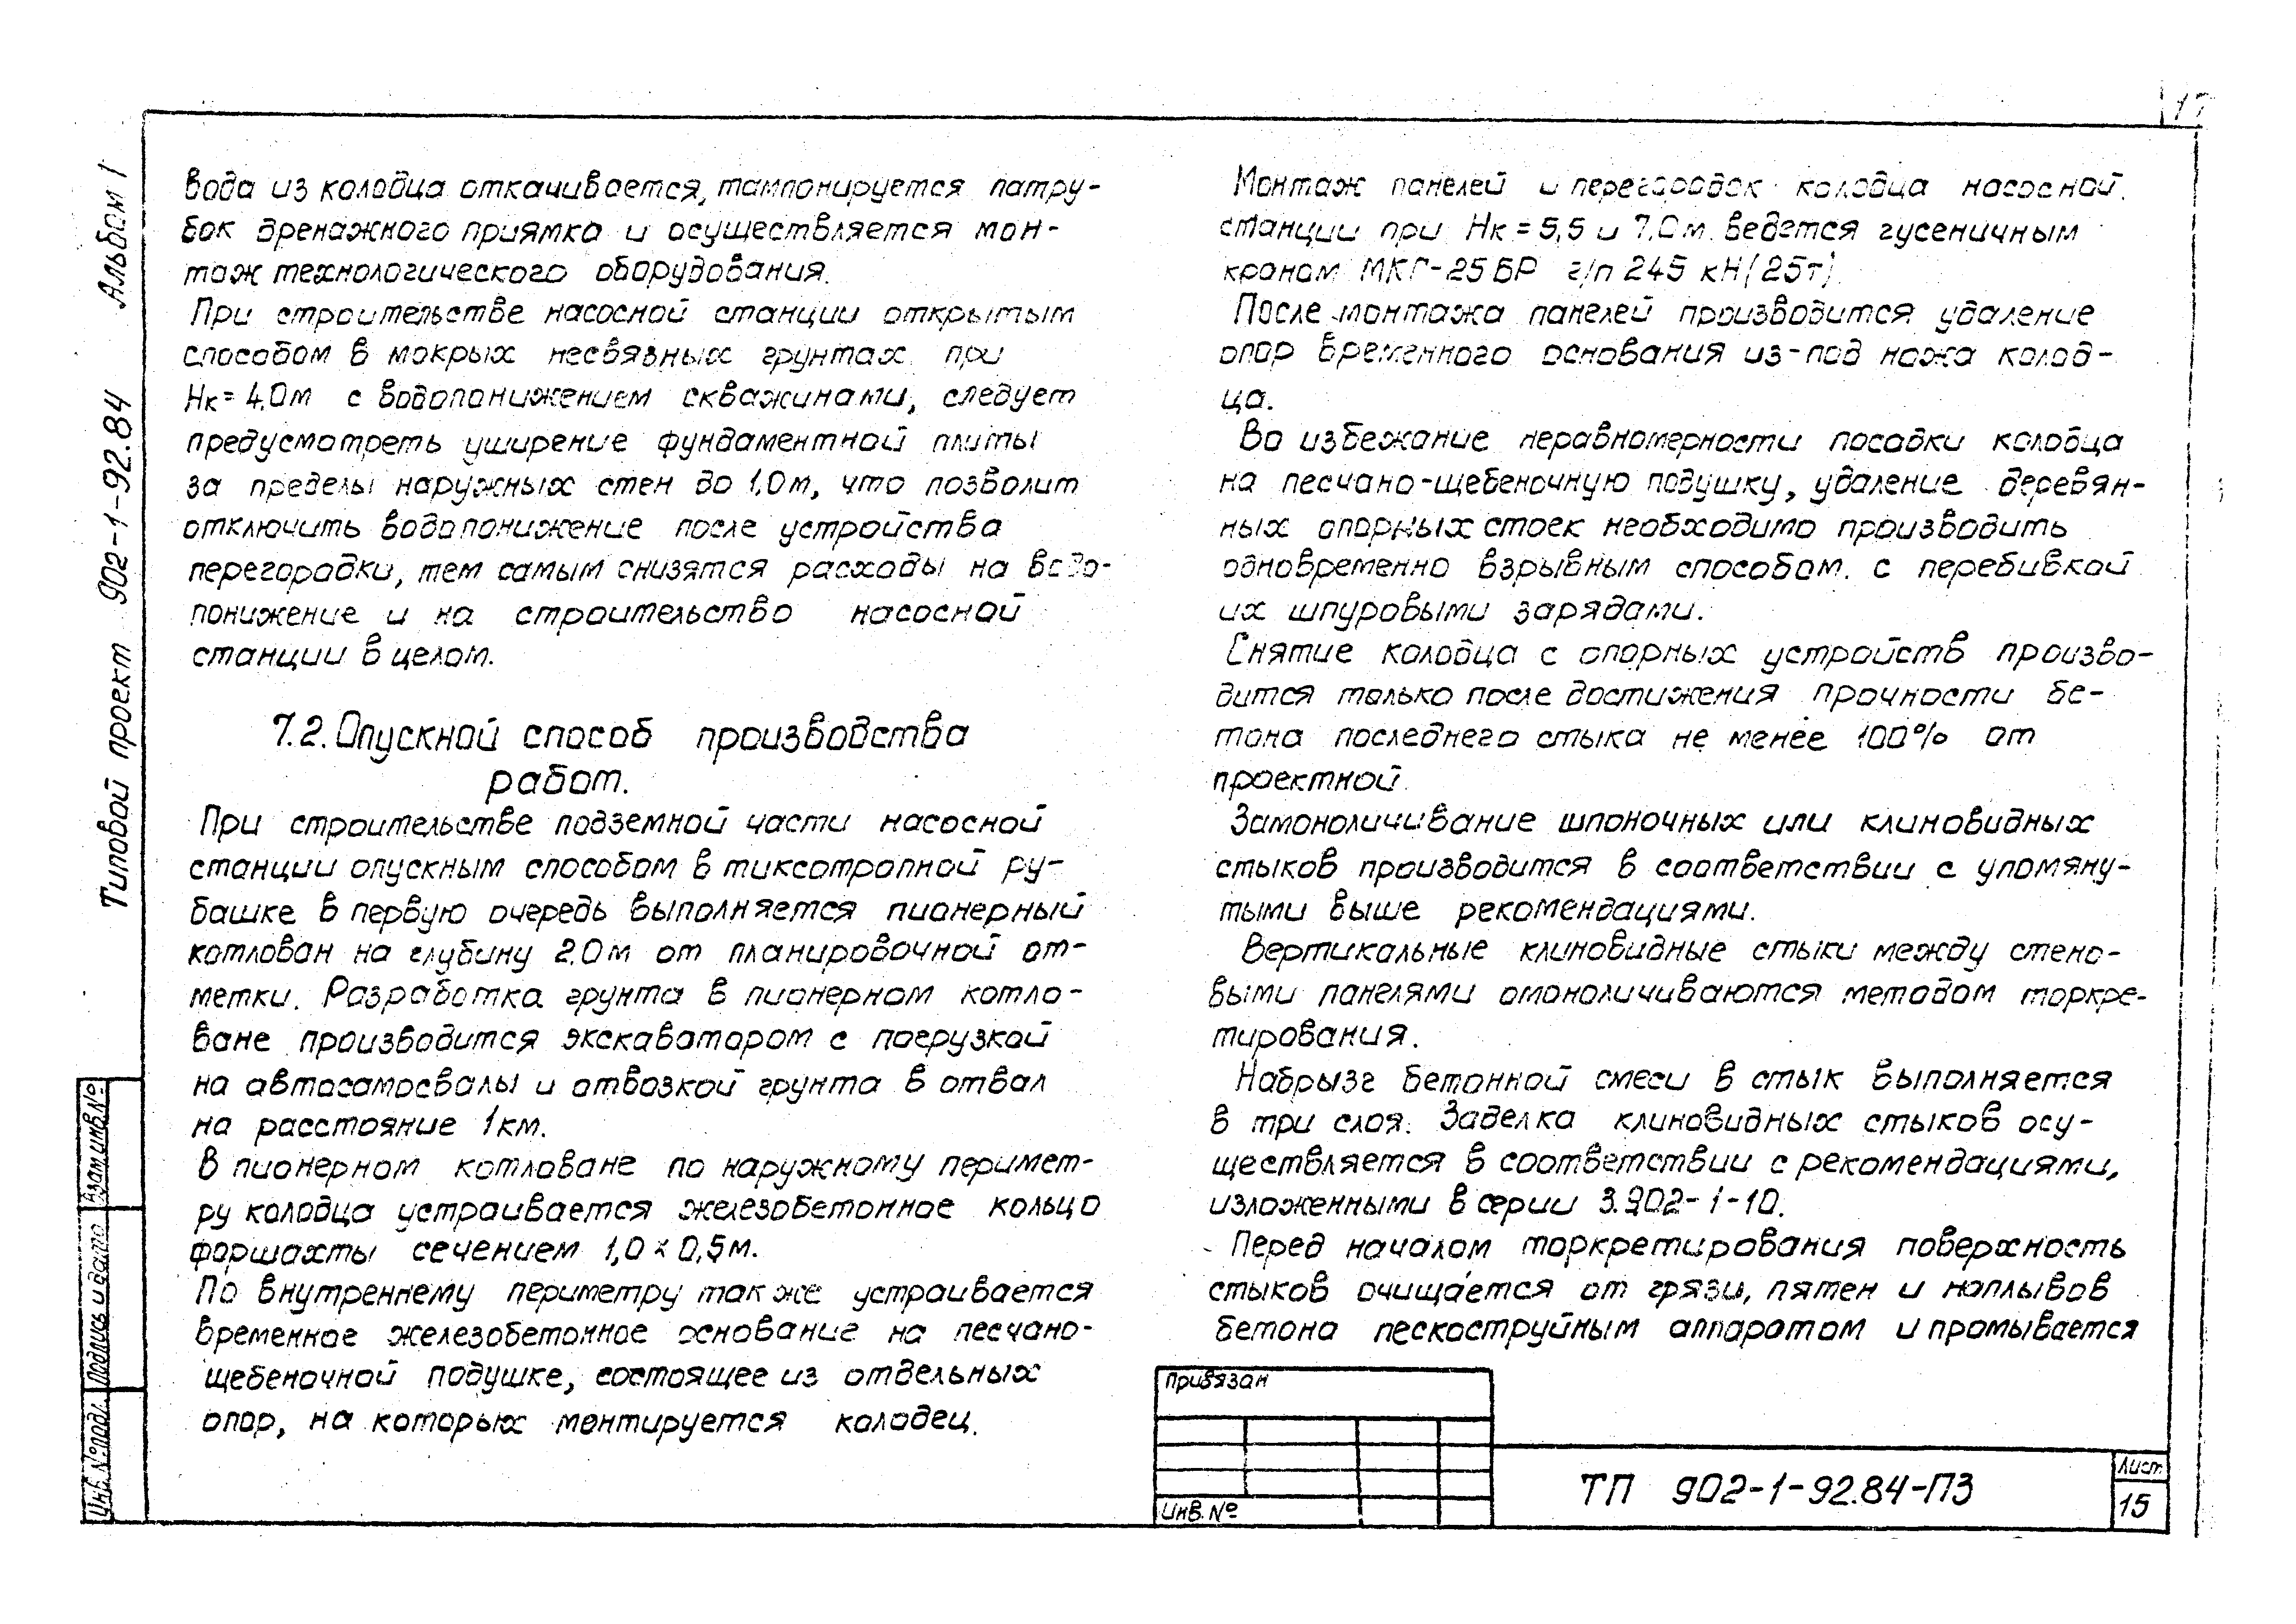 17
Типовой проект 902-1-92.84 Альбом I
вода из колодца откачивается, тампонируется патру-
бок дренажного приямка и осуществляется мон-
таж технологического оборудования.
При строительстве насосной станции открытым
способом в мокрых несвязных грунтах при
Нк = 4.0м с водопонижением скважинами, следует
предусмотреть уширение фундаментной плиты
за пределы наружных стен до 1.0м, что позволит
отключить водопонижение после устройства
перегородки, тем самым снизятся расходы на водо-
понижение и на строительство насосной
станции в целом.
7.2. Опускной способ производства
работ.
При строительстве подземной части насосной
станции опускным способом в тиксотропной ру-
башке в первую очередь выполняется пионерный
котлован на глубину 2.0м от планировочной от-
метки. Разработка грунта в пионерном котло-
ване производится экскаватором с погрузкой
на автосамосвалы и отвозкой грунта в отвал
на расстояние 1км.
В пионерном котловане по наружному перимет-
ру колодца устраивается железобетонное кольцо
форшахты сечением 1,0 х 0,5м.
По внутреннему периметру так же устраивается
временное железобетонное основание на песчано-
щебеночной подушке, состоящее из отдельных
опор, на которых монтируется колодец.
Монтаж панелей и перегородок колодца насосной
станции при Нк = 5,5 и 7.0м ведется гусеничным
краном МКГ-25БР г/п 245 кН(25т)
После монтажа панелей производится удаление
опор временного основания из-под ножа колод-
ца.
Во избежание неравномерности посадки колодца
на песчано-щебеночную подушку, удаление деревян-
ных опорных стоек необходимо производить
одновременно взрывным способом. с перебивкой
их шпуровыми зарядами.
Снятие колодца с опорных устройств произво-
дится только после достижения прочности бе-
тона последнего стыка не менее 100% от
проектной.
Замоноличивание шпоночных или клиновидных
стыков производится в соответствии с упомяну-
тыми выше рекомендациями.
Вертикальные клиновидные стыки между стено-
выми панелями омоноличиваются методом торкре-
тирования.
Набрызг бетонной смеси в стык выполняется
в три слоя. Заделка клиновидных стыков осу-
ществляется в соответствии с рекомендациями,
изложенными в серии 3.902-1-10.
Перед началом торкретирования поверхность
стыков очищается от грязи, пятен и наплывов
бетона пескоструйным аппаратом и промывается
Взам инв.№
Подпись и дата
Инв.№подл.
Привязан
Инв. №
ТП 902-1-92.84-ПЗ
Лист
15